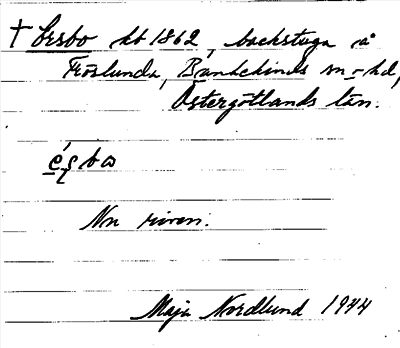 † Ersbo hb 1862, backstuga å
Fröslunda, Bankekinds sn o hd,
Östergötlands län.
Nu riven.
Maja Nordlund 1944